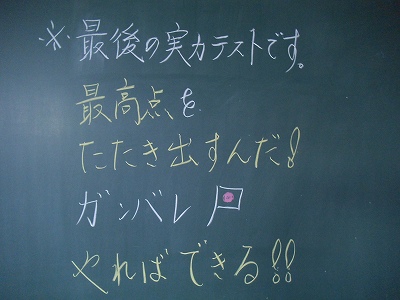 ※最後の実力テストです。
最高点を
たたき出すんだ!
ガンバレ
やればできる!!